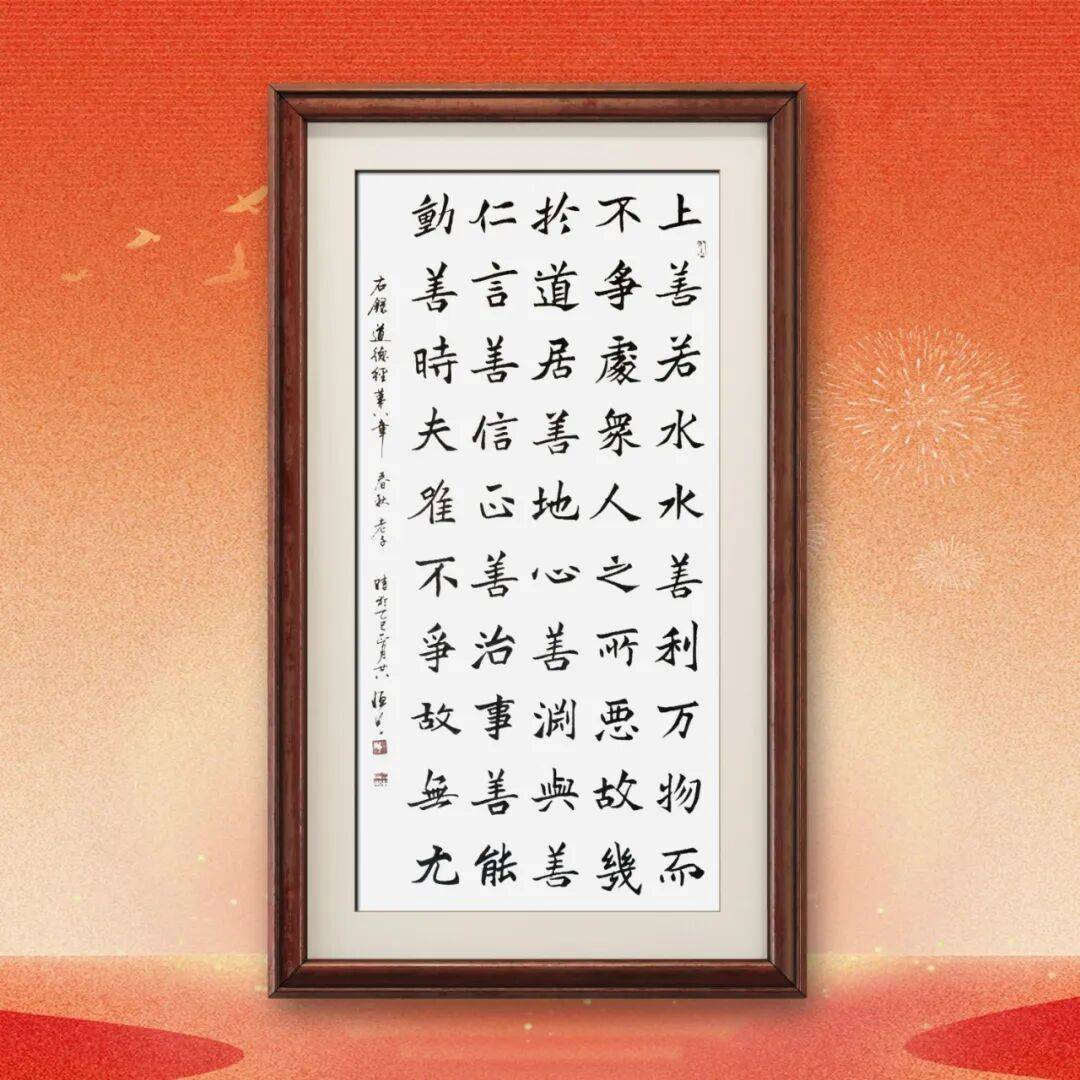 上善若水水善利万物而
不爭處衆人之所惡故幾
扵道居善地心善渊與善
仁言善信正善治事善能
動善時夫唯不爭故無尤
右録道德經第八章 春秋 老子 時於乙巳正月廿八